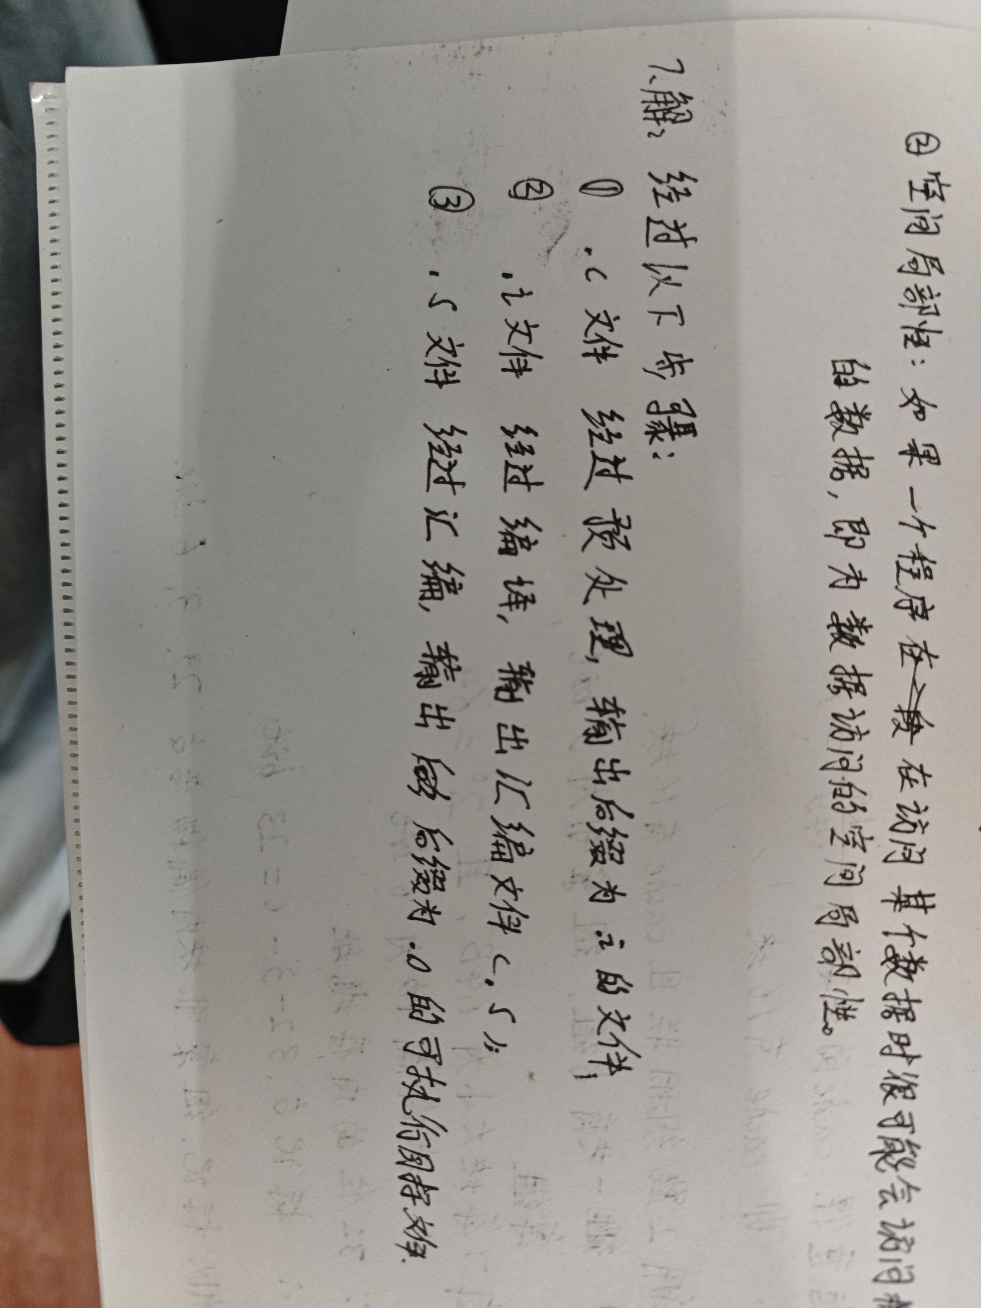 ②空间局部性：如果一个程序在访问某个数据时很可能会访问
的数据，即为数据访问的空间局部性。
7、解：经过以下步骤：
① .c文件 经过预处理，输出后缀为.i的文件；
② .i文件 经过编译，输出汇编文件(.s)；
③ .s文件 经过汇编，输出后缀为.o的可执行目标文件.